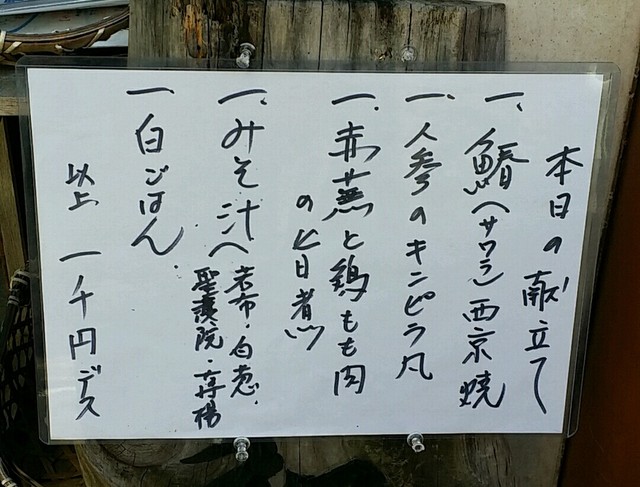 本日の献立て
一、鰆(サワラ)西京焼
一、人参のキンピラ凡
一、赤蕪と鶏もも肉
の旨煮
一、みそ汁へ若布・白葱・
聖護院・
一、白ごはん.
以上 一千円デス